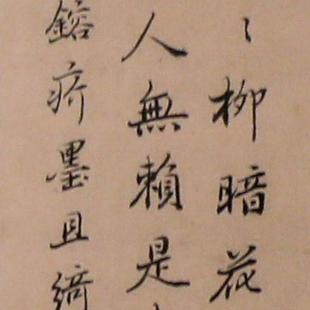 〻柳暗花
人無賴是
鎔疥墨且